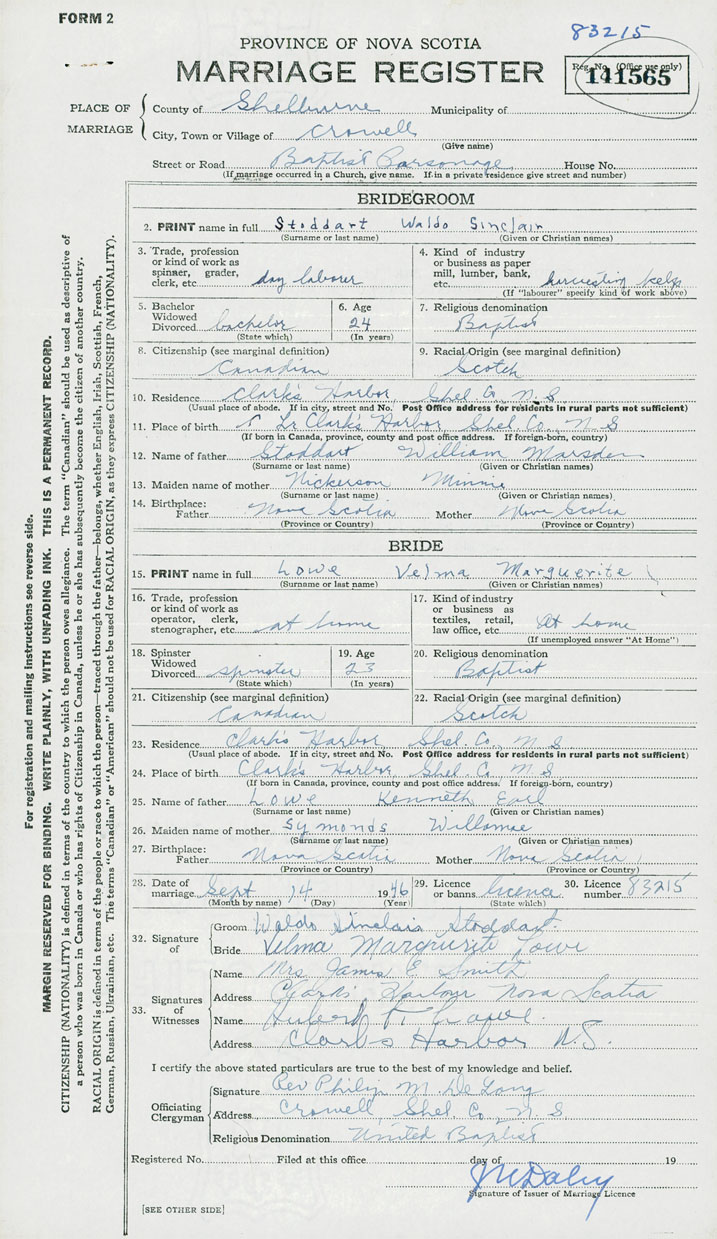 FORM 2
83215
PROVINCE OF NOVA SCOTIA
MARRIAGE REGISTER
Reg. No. (Office use only)
141565
PLACE OF MARRIAGE
County of Shelburne Municipality of
City, Town or Village of Crowell
(Give name)
Street or Road Baptist Parsonage House No.
(If marriage occurred in a Church, give name. If in a private residence give street and number)
BRIDEGROOM
2. PRINT name in full Stoddart Waldo Sinclair
(Surname or last name) (Given or Christian names)
3. Trade, profession
or kind of work as
spinner, grader,
clerk, etc. day laborer
4. Kind of industry
or business as paper
mill, lumber, bank,
etc. harvesting kelp
(If "labourer" specify kind of work above)
5. Bachelor
Widowed
Divorced bachelor
(State which)
6. Age
24
(In years)
7. Religious denomination
Baptist
8. Citizenship (see marginal definition)
Canadian
9. Racial Origin (see marginal definition)
Scotch
10. Residence Clark's Harbor, Shel Co, N S
(Usual place of abode. If in city, street and No. Post Office address for residents in rural parts not sufficient)
11. Place of birth Lr Clark's Harbor Shel Co. N S
(If born in Canada, province, county and post office address. If foreign-born, country)
12. Name of father Stoddart William Marsden
(Surname or last name) (Given or Christian names)
13. Maiden name of mother Nickerson Minnie
(Surname or last name) (Given or Christian names)
14. Birthplace:
Father Nova Scotia Mother Nova Scotia
(Province or Country) (Province or Country)
BRIDE
15. PRINT name in full Lowe Velma Marguerite
(Surname or last name) (Given or Christian names)
16. Trade, profession
or kind of work as
operator, clerk,
stenographer, etc. at home
17. Kind of industry
or business as
textiles, retail,
law office, etc. At home
(If unemployed answer "At Home")
18. Spinster
Widowed
Divorced spinster
(State which)
19. Age
23
(In years)
20. Religious denomination
Baptist
21. Citizenship (see marginal definition)
Canadian
22. Racial Origin (see marginal definition)
Scotch
23. Residence Clark's Harbor, Shel. Co. N S
(Usual place of abode. If in city, street and No. Post Office address for residents in rural parts not sufficient)
24. Place of birth Clark's Harbor, Shel. Co N S
(If born in Canada, province, county and post office address. If foreign-born, country)
25. Name of father Lowe Kenneth Earl
(Surname or last name) (Given or Christian names)
26. Maiden name of mother Symonds
(Surname or last name) (Given or Christian names)
27. Birthplace:
Father Nova Scotia Mother Nova Scotia
(Province or Country) (Province or Country)
28. Date of
marriage Sept 14 1946
(Month by name) (Day) (Year)
29. Licence
or banns licence
(State which)
30. Licence
number 83215
32. Signature of
Groom Waldo Sinclair Stoddart
Bride Velma Margurite Lowe
33. Signatures of Witnesses
Name Mrs James E Smith
Address Clark's Harbour Nova Scotia
Name Hubert
Address Clark's Harbor N.S.
I certify the above stated particulars are true to the best of my knowledge and belief.
Officiating Clergyman
Signature Rev Philip M. De Long
Address Crowell, Shel Co, N. S
Religious Denomination United Baptist
Registered No. Filed at this office day of 19
Signature of Issuer of Marriage Licence
[SEE OTHER SIDE]
For registration and mailing instructions see reverse side.
MARGIN RESERVED FOR BINDING. WRITE PLAINLY, WITH UNFADING INK. THIS IS A PERMANENT RECORD.
CITIZENSHIP (NATIONALITY) is defined in terms of the country to which the person owes allegiance. The term "Canadian" should be used as descriptive of
a person who was born in Canada or who has rights of Citizenship in Canada, unless he or she has subsequently become the citizen of another country.
RACIAL ORIGIN is defined in terms of the people or race to which the person—traced through the father—belongs, whether English, Irish, Scottish, French,
German, Russian, Ukrainian, etc. The terms "Canadian" or "American" should not be used for RACIAL ORIGIN, as they express CITIZENSHIP (NATIONALITY).